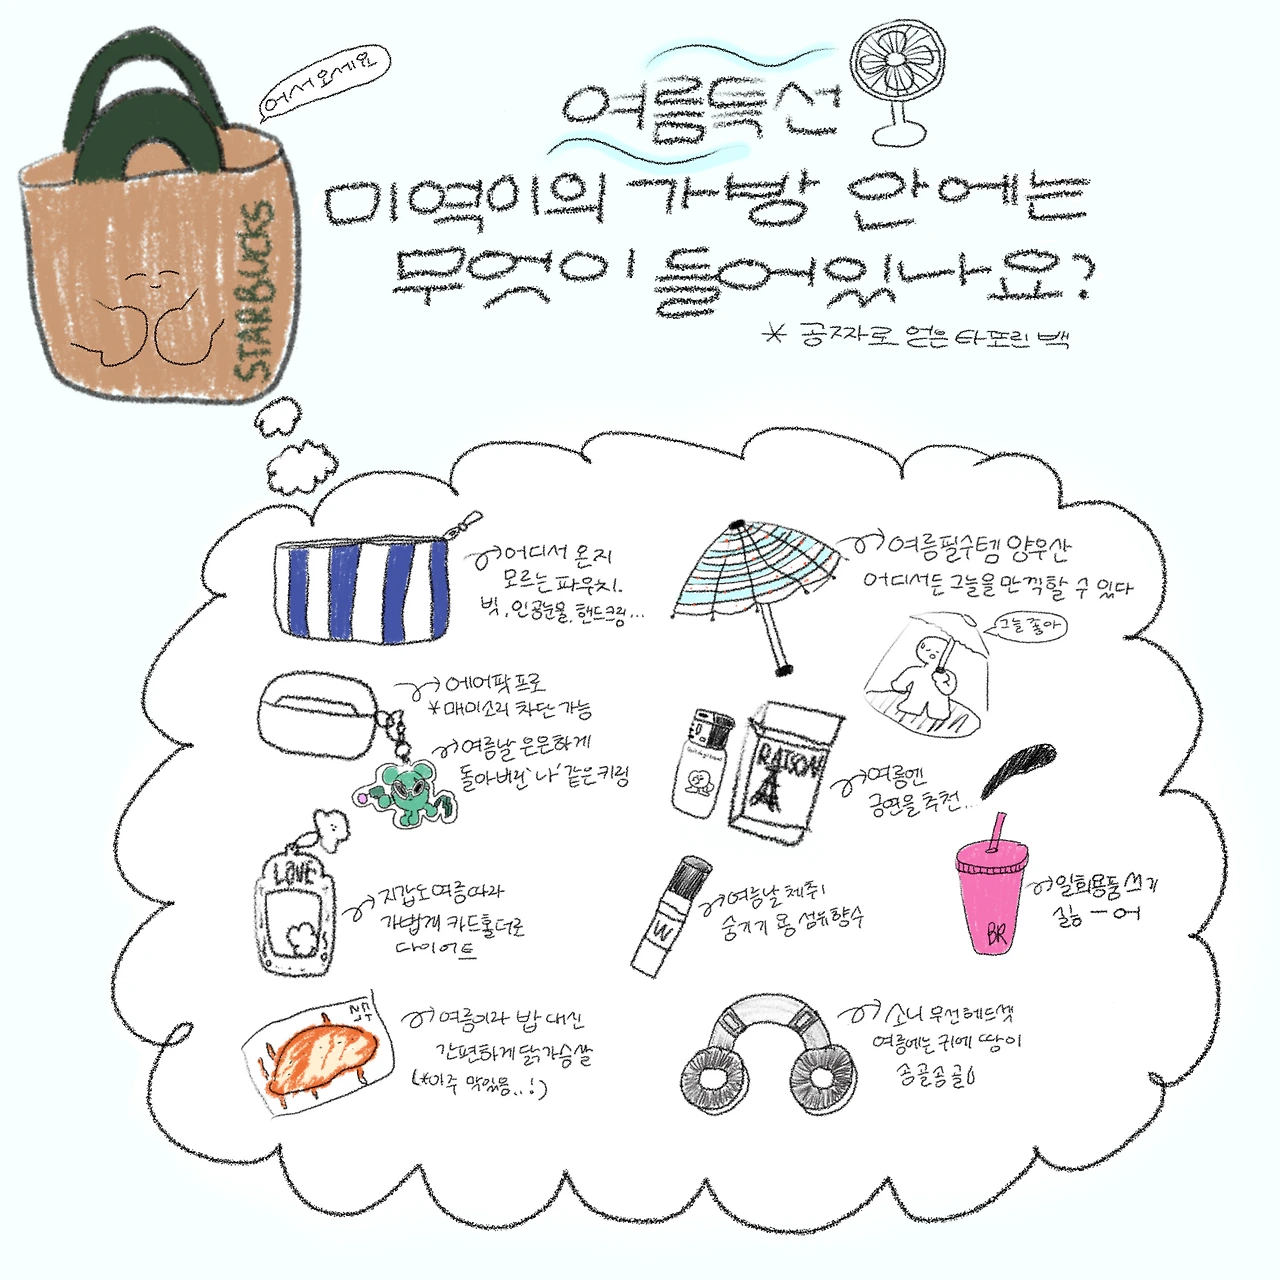 어서오세요
여름특선
미역이의 가방 안에는
무엇이 들어있나요?
* 공짜로 얻은 타포린 백
STARBUCKS
어디서 온지
모르는 파우치.
빗, 인공눈물, 핸드크림...
여름필수템 양우산
어디서든 그늘을 만끽할 수 있다
그늘 좋아
에어팟 프로
*매미소리 차단 가능
여름날 은은하게
돌아버린 '나' 같은 키링
여름엔
금연을 추천...
LOVE
지갑도 여름따라
가볍게 카드홀더로
다이어트
W
여름날 체취
숨기기 용 섬유향수
BR
일회용품 쓰기
싫ㅡ어
여름이라 밥 대신
간편하게 닭가슴살
(*아주 맛있음..!)
소니 무선헤드셋
여름에는 귀에 땀이
송골송골